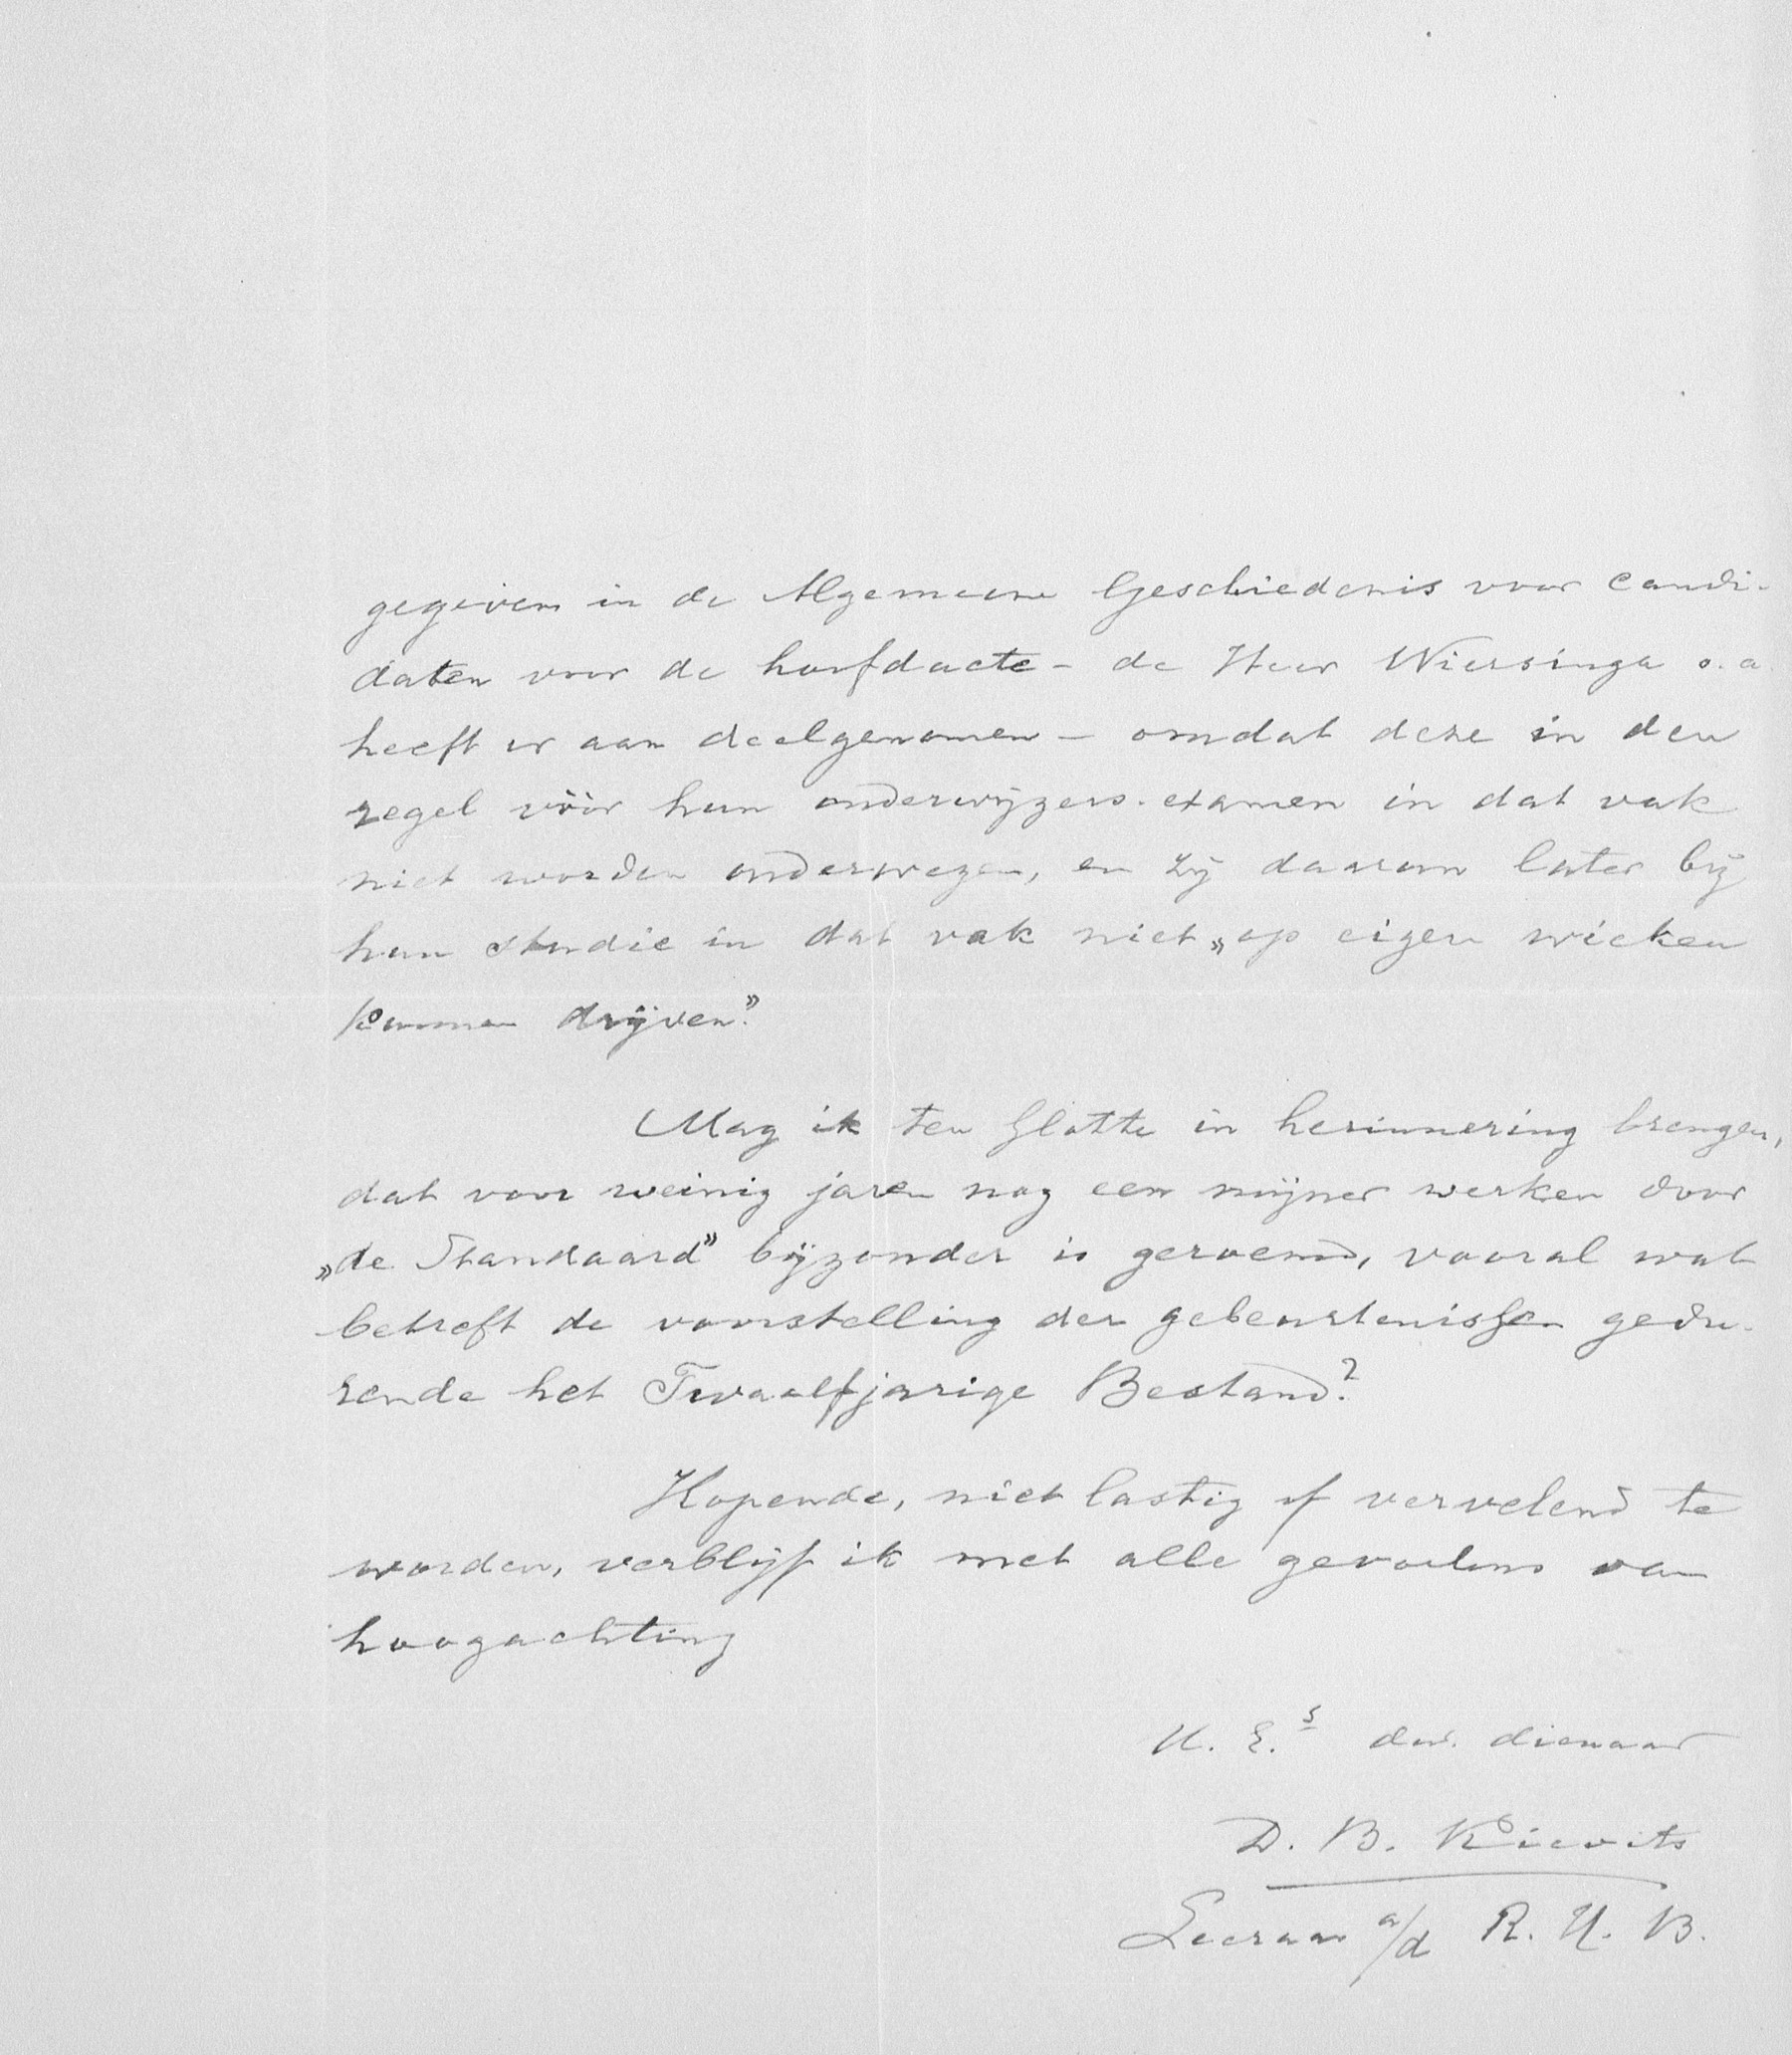 gegeven in de Algemeene Geschiedenis voor candi-
daten voor de hoofdacte – de Heer Wiersinga o.a.
heeft er aan deelgenomen – omdat deze in den
regel vòòr hun onderwijzers-examen in dat vak
niet worden onderwezen, en zij daarom later bij
hun studie in dat vak niet „op eigen wieken
kunnen drijven.”
Mag ik ten slotte in herinnering brengen,
dat voor weinig jaren nog een mijner werken door
„de Standaard” bijzonder is geroemd, vooral wat
betreft de voorstelling der gebeurtenissen gedu-
rende het Twaalfjarige Bestand?
Hopende, niet lastig of vervelend te
worden, verblijf ik met alle gevoelens van
hoogachting
U. E.s dw. dienaar
D. B. Kievits
Leeraar a/d R. N. B.